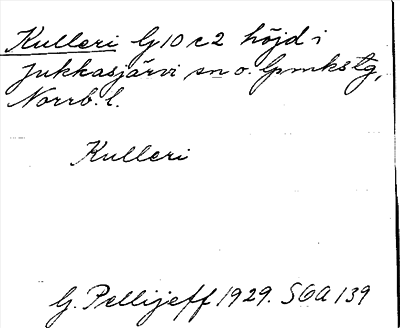 Kulleri G10c2 höjd i
Jukkasjärvi sn o. lpmkstg,
Norrb. l.
Kulleri
G. Pellijeff 1929. SOA 139